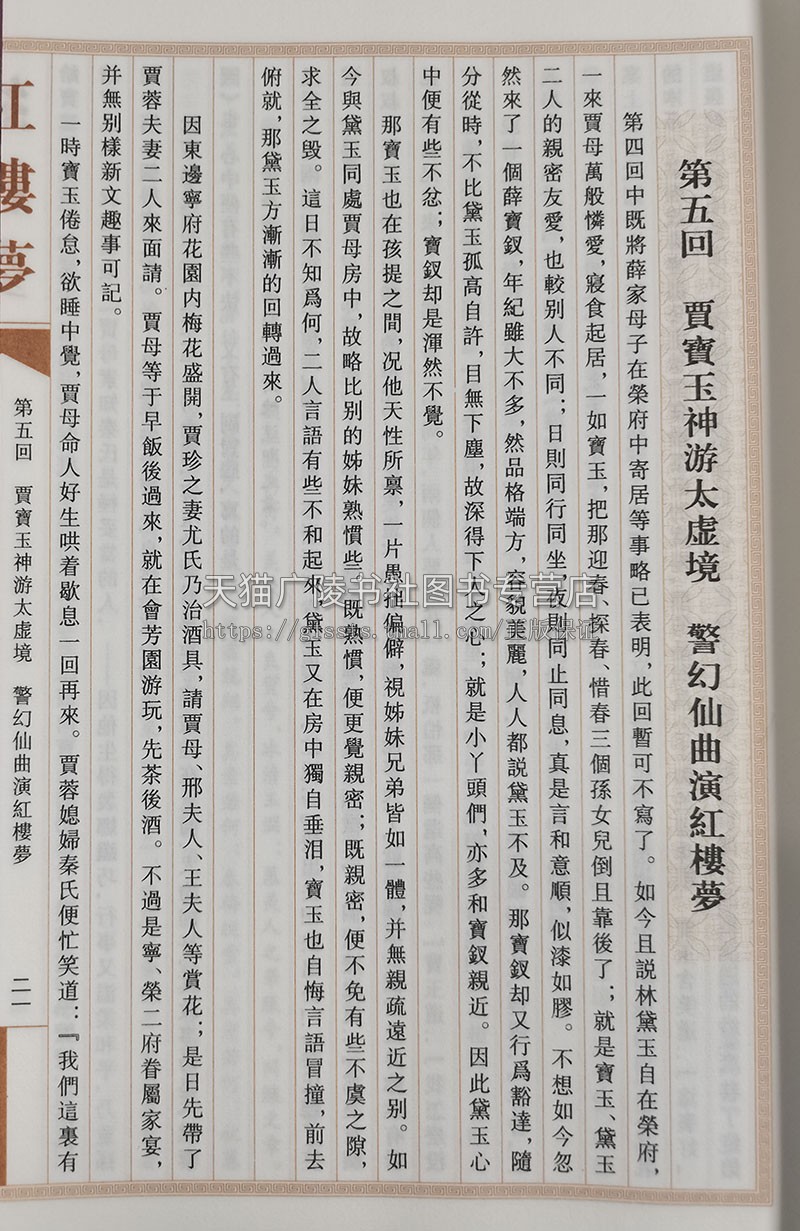 第五回　賈寶玉神游太虛境　警幻仙曲演紅樓夢
第四回中既將薛家母子在榮府中寄居等事略已表明，此回暫可不寫了。如今且説林黛玉自在榮府，
一來賈母萬般憐愛，寢食起居，一如寶玉，把那迎春、探春、惜春三個孫女兒倒且靠後了；就是寶玉、黛玉
二人的親密友愛，也較别人不同；日則同行同坐，夜則同止同息，真是言和意順，似漆如膠。不想如今忽
然來了一個薛寶釵，年紀雖大不多，然品格端方，容貌美麗，人人都説黛玉不及。那寶釵却又行爲豁達，隨
分從時，不比黛玉孤高自許，目無下塵，故深得下人之心；就是小丫頭們，亦多和寶釵親近。因此黛玉心
中便有些不忿；寶釵却是渾然不覺。
那寶玉也在孩提之間，况他天性所禀，一片愚拙偏僻，視姊妹兄弟皆如一體，并無親疏遠近之别。如
今與黛玉同處賈母房中，故略比别的姊妹熟慣些。既熟慣，便更覺親密；既親密，便不免有些不虞之隙，
求全之毁。這日不知爲何，二人言語有些不和起來，黛玉又在房中獨自垂泪，寶玉也自悔言語冒撞，前去
俯就，那黛玉方漸漸的回轉過來。
因東邊寧府花園内梅花盛開，賈珍之妻尤氏乃治酒具，請賈母、邢夫人、王夫人等賞花；是日先帶了
賈蓉夫妻二人來面請。賈母等于早飯後過來，就在會芳園游玩，先茶後酒。不過是寧、榮二府眷屬家宴，
并無别樣新文趣事可記。
一時寶玉倦怠，欲睡中覺，賈母命人好生哄着歇息一回再來。賈蓉媳婦秦氏便忙笑道：『我們這裏有
紅樓夢
第五回　賈寶玉神游太虛境　警幻仙曲演紅樓夢
二一
天猫广陵书社图书专营店
https://glssts.tmall.com/正版保证